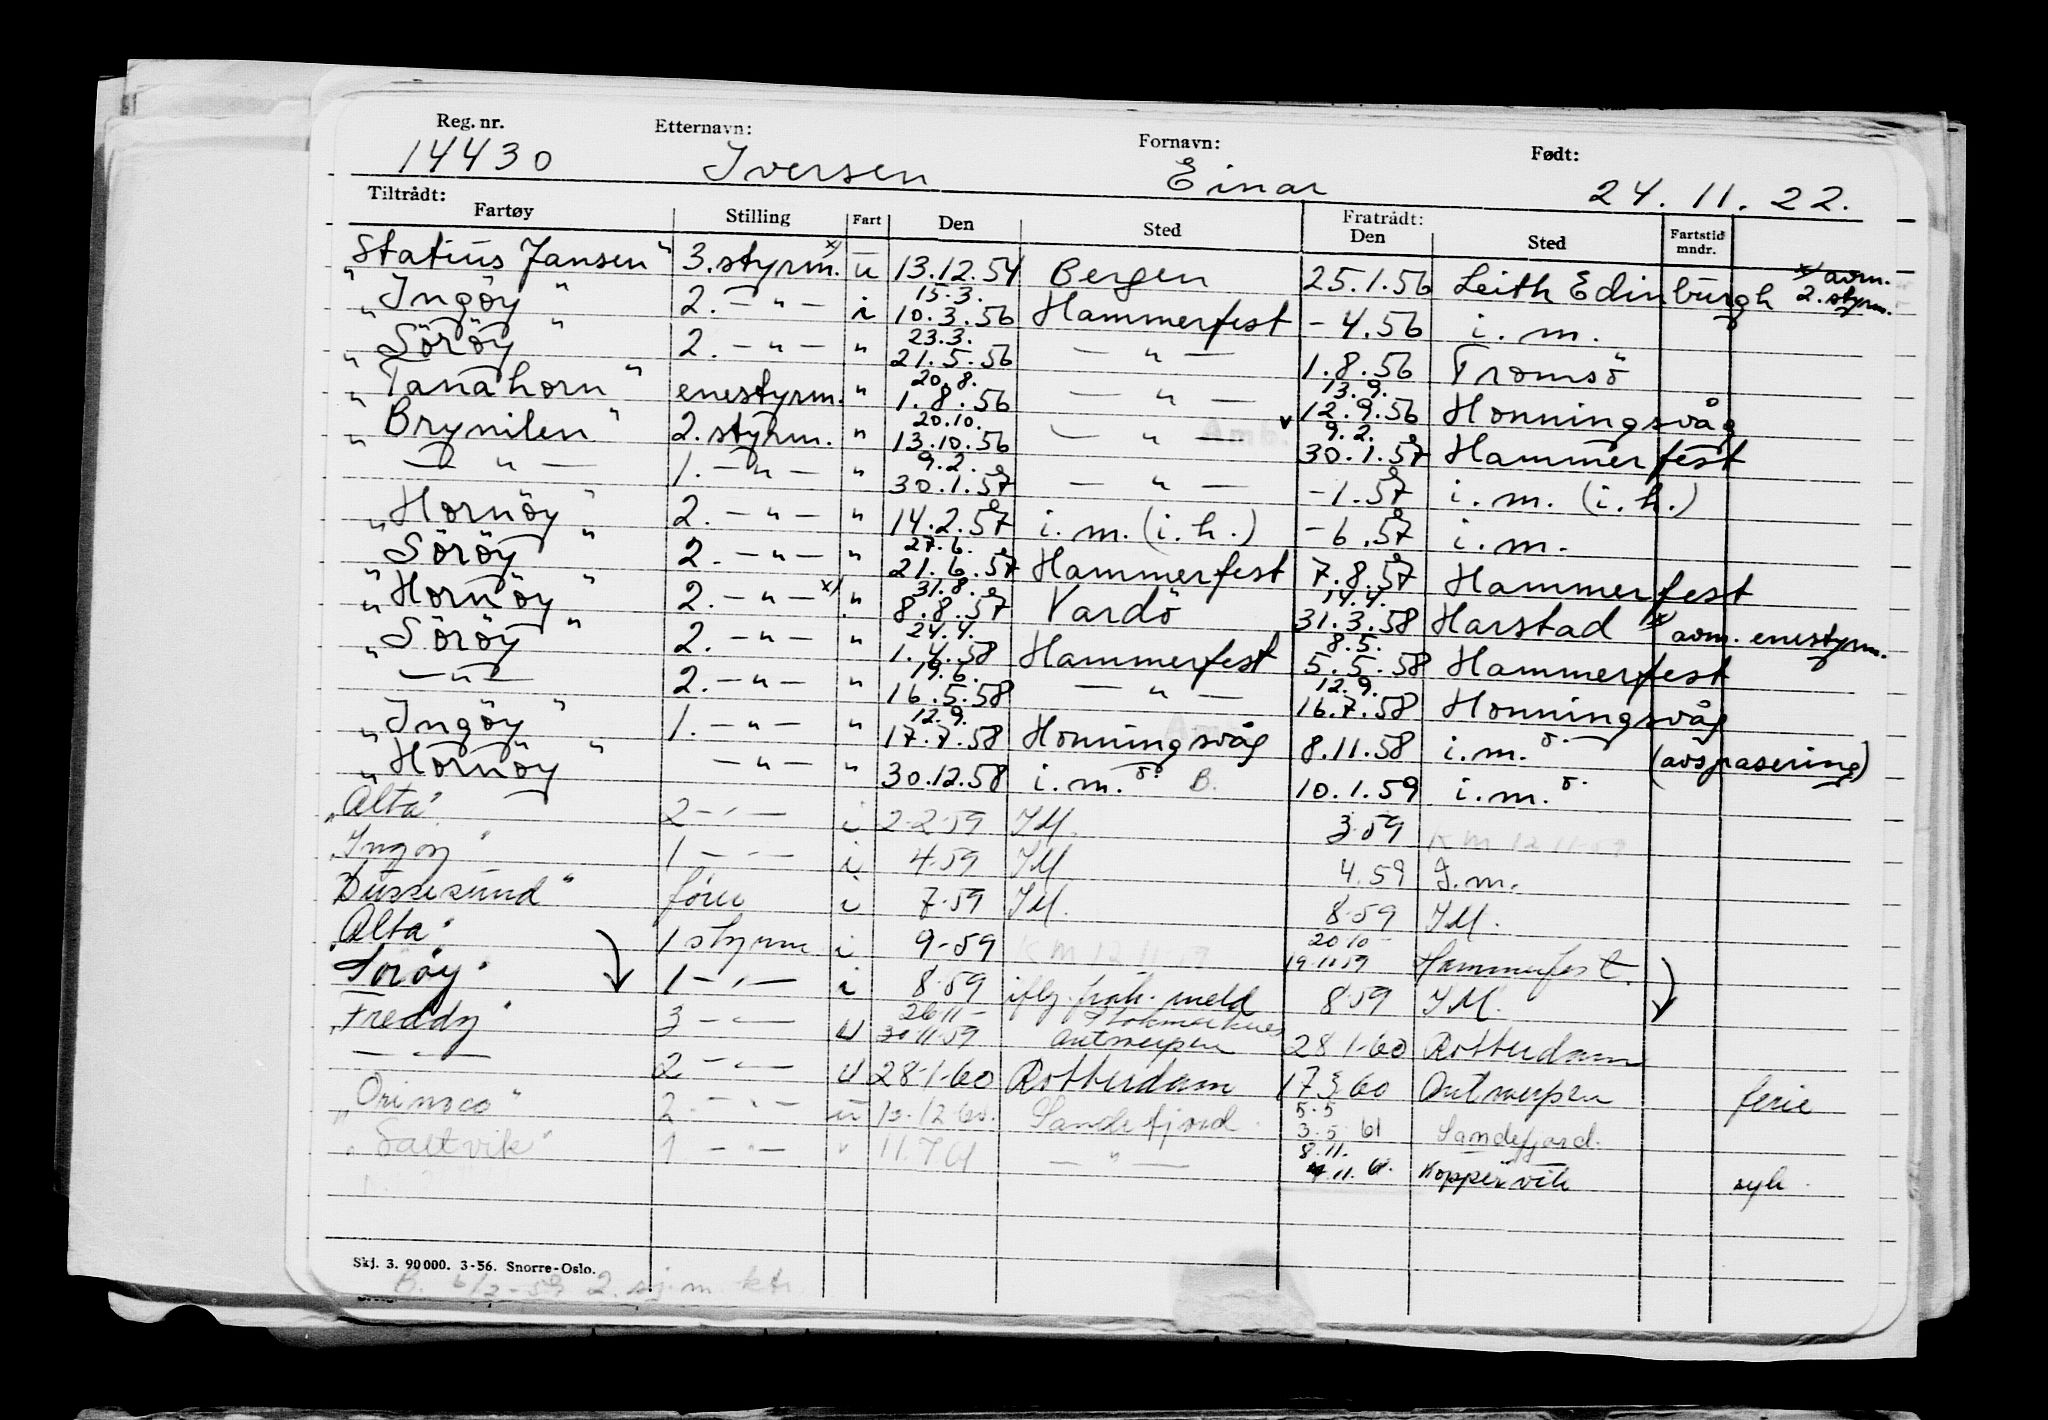 Reg. nr. Etternavn: Fornavn: Født:
14430 Iversen Einar 24.11.22.
Tiltrådt: Fratrådt:
Fartøy Stilling Fart Den Sted Den Sted Fartstid mndr.
Statius Jansen" 3.styrm. x) u 13.12.54 Bergen 25.1.56 Leith Edinburgh x) avm. 2. styrm.
"Ingöy" 2. — " — i 15.3. 10.3.56 Hammerfest - 4.56 i.m.
"Söröy" 2. — " — " 23.3. 21.5.56 — " — 1.8.56 Tromsö
"Tanahorn" enestyrm. " 20.8. 1.8.56 — " — 13.9. 12.9.56 Honningsvåg
"Brynilen" 2.styrm. " 20.10. 13.10.56 — " — 9.2. 30.1.57 Hammerfest
— " — 1. — " — " 9.2. 30.1.57 — " — - 1.57 i.m. (i.h.)
"Hornöy" 2. — " — " 14.2.57 i.m. (i.h.) - 6.57 i.m.
"Söröy" 2. — " — " 27.6. 21.6.57 Hammerfest 7.8.57 Hammerfest
"Hornöy" 2. — " — x) " 31.8. 8.8.57 Vardö 14.4. 31.3.58 Harstad x) avm. enestyrm.
"Söröy" 2. — " — " 24.4. 1.4.58 Hammerfest 8.5. 5.5.58 Hammerfest
— " — 2. — " — " 19.6. 16.5.58 — " — 12.9. 16.7.58 Honningsvåg
"Ingöy" 1. — " — " 12.9. 17.7.58 Honningsvåg 8.11.58 i.m. ö. (avspasering)
"Hornöy" — " — " 30.12.58 i.m. ö. B. 10.1.59 i.m. ö.
"Alta" 2 — " — i 2-2-59 IM. 3.59 KM 12.11.59
"Ingöy" 1 — " — i 4.59 IM 4.59 I.m.
"Bussesund" förer i 7.59 IM. 8.59 IM.
"Alta" 1 styrm. i 9-59 KM 12.11.59 20.10 - 19.11.59 Hammerfest.
"Söröy" 1 — " — i 8.59 iflg. frah. meld 8.59 IM.
"Freddy" 3 — " — U 26.11 - 30.11.59 Stokmarknes Antwerpen 28.1-60 Rotterdam
— " — 2 — " — U 28-1-60 Rotterdam 17.3.60 Antwerpen ferie
"Orinoco" 2. — " — u 10.12.60. Sandefjord. 5.5 3.5.61 Sandefjord.
"Saltvik" 1. — " — " 11.7.61 — " — 8.11. 4.11.61. Koppervik syk.
Skj. 3. 90000. 3-56. Snorre-Oslo.
B. 6/2-59 2. sj.m. ktr.